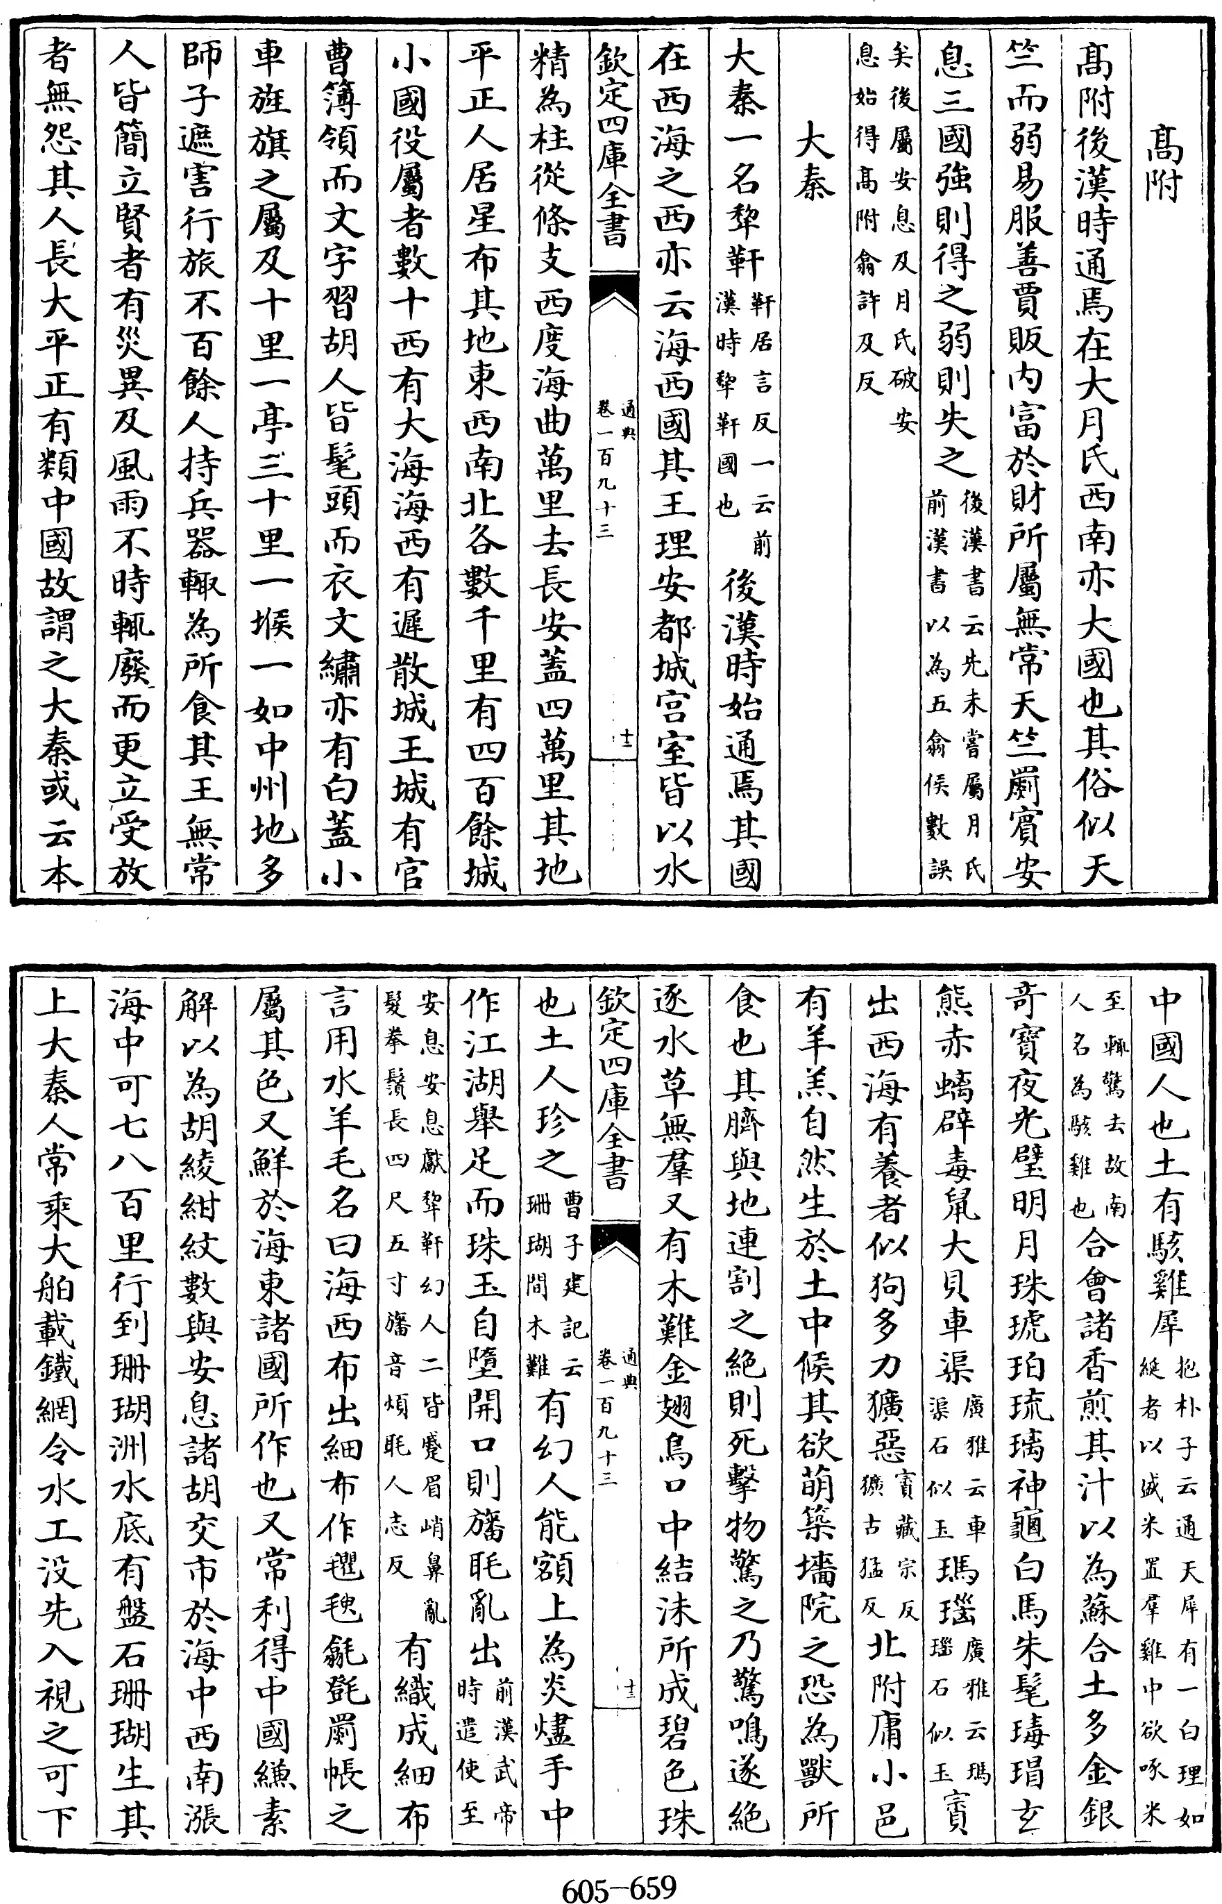 高附
髙附後漢時通焉在大月氏西南亦大國也其俗似天
竺而弱易服善賈販内富於財所屬無常天竺罽賓安
息三國強則得之弱則失之後漢書云先未嘗屬月氏前漢書以為五翕侯數誤
矣後屬安息及月氏破安息始得髙附翕許及反
大秦
大秦一名犂靬靬居言反一云前漢時犂靬國也後漢時始通焉其國
在西海之西亦云海西國其王理安都城宫室皆以水
欽定四庫全書
通典
卷一百九十三
十二
精為柱從條支西度海曲萬里去長安蓋四萬里其地
平正人居星布其地東西南北各數千里有四百餘城
小國役屬者數十西有大海海西有遲散城王城有官
曹簿領而文字習胡人皆髦頭而衣文繡亦有白蓋小
車旌旗之屬及十里一亭三十里一堠一如中州地多
師子遮害行旅不百餘人持兵器輙為所食其王無常
人皆簡立賢者有災異及風雨不時輒廢而更立受放
者無怨其人長大平正有類中國故謂之大秦或云本
中國人也土有駭雞犀抱朴子云通天犀有一白理如綖者以盛米置羣雞中欲啄米
至輙驚去故南人名為駭雞也合會諸香煎其汁以為蘇合土多金銀
竒寳夜光璧明月珠琥珀琉璃神龜白馬朱髦瑇瑁玄
熊赤螭辟毒鼠大貝車渠廣雅云車渠石似玉瑪瑙廣雅云瑪瑙石似玉賨
出西海有養者似狗多力獷惡賨藏宗反獷古猛反北附庸小邑
有羊羔自然生於土中候其欲萌築墻院之恐為獸所
食也其臍與地連割之絶則死擊物驚之乃驚鳴遂絶
逐水草無羣又有木難金翅鳥口中結沫所成碧色珠
欽定四庫全書
通典
卷一百九十三
十三
也土人珍之曹子建記云珊瑚間木難有幻人能額上為炎燼手中
作江湖舉足而珠玉自墮開口則旛毦亂出前漢武帝時遣使至
安息安息獻犂靬幻人二皆蹙眉峭鼻亂髮拳鬚長四尺五寸旛音煩毦人志反有織成細布
言用水羊毛名曰海西布出細布作氍毹毾㲪罽帳之
屬其色又鮮於海東諸國所作也又常利得中國縑素
解以為胡綾紺紋數與安息諸胡交市於海中西南漲
海中可七八百里行到珊瑚洲水底有盤石珊瑚生其
上大秦人常乘大舶載鐵網令水工没先入視之可下
605-659